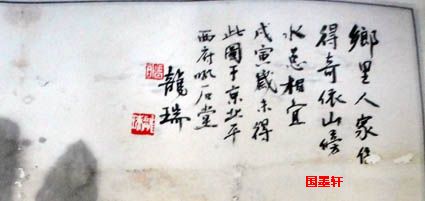 鄉里人家住
得奇依山傍
水总相宜
戊寅歲末得
此圖于京北平
西府吼石堂
龍瑞
国墨轩